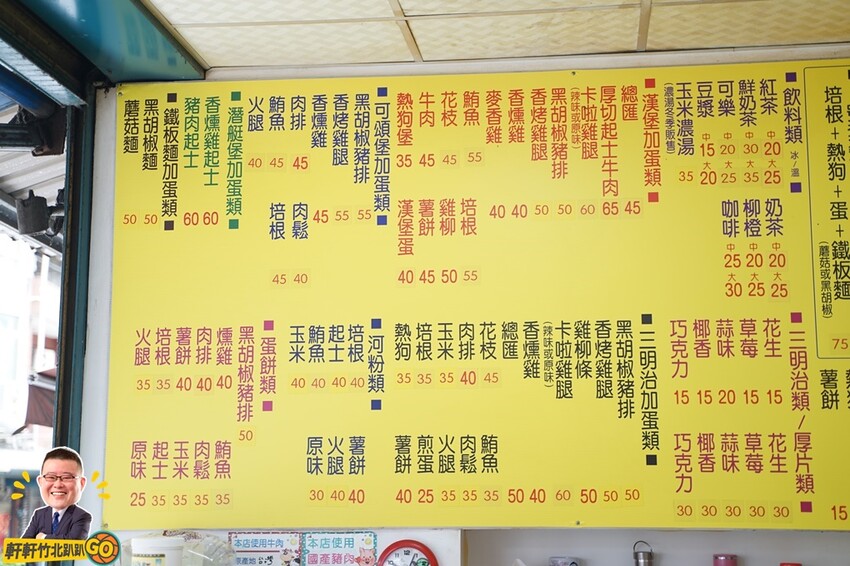 培根+熱狗+蛋+鐵板麵
(蘑菇或黑胡椒)
75
薯餅
15
■飲料類 冰/溫■
紅茶 中20大25
鮮奶茶 中30大35
可樂 中20大25
豆漿 中15大20
玉米濃湯 35
(濃湯冬季販售)
奶茶 中20大25
柳橙 中20大25
咖啡 中25大30
■漢堡加蛋類■
總匯 45
厚切起士牛肉 65
卡啦雞腿 60
(辣味或原味)
黑胡椒豬排 50
香烤雞腿 50
香燻雞 40
麥香雞 40
鮪魚 55
花枝 45
牛肉 45
熱狗堡 35
培根 55
雞柳 50
薯餅 45
漢堡蛋 40
■可頌堡加蛋類■
黑胡椒豬排 55
香烤雞腿 55
香燻雞 45
肉排 45
鮪魚 45
火腿 40
肉鬆 40
培根 45
■潛艇堡加蛋類■
香燻雞起士 60
豬肉起士 60
■鐵板麵加蛋類■
黑胡椒麵 50
蘑菇麵 50
■三明治類/厚片類■
花生 15
草莓 15
蒜味 20
椰香 15
巧克力 15
花生 30
草莓 30
蒜味 30
椰香 30
巧克力 30
■三明治加蛋類■
黑胡椒豬排 50
香烤雞腿 50
雞柳條 50
卡啦雞腿 60
(辣味或原味)
香燻雞 40
總匯 50
花枝 45
肉排 40
玉米 35
培根 35
熱狗 35
鮪魚 35
肉鬆 35
火腿 35
煎蛋 25
薯餅 40
■河粉類■
培根 40
起士 40
鮪魚 40
玉米 40
薯餅 40
火腿 40
原味 30
■蛋餅類■
黑胡椒豬排 50
燻雞 40
肉排 40
薯餅 40
培根 35
火腿 35
鮪魚 35
肉鬆 35
玉米 35
起士 35
原味 25
軒軒竹北趴趴GO
本店使用牛肉
本店使用
國產豬肉